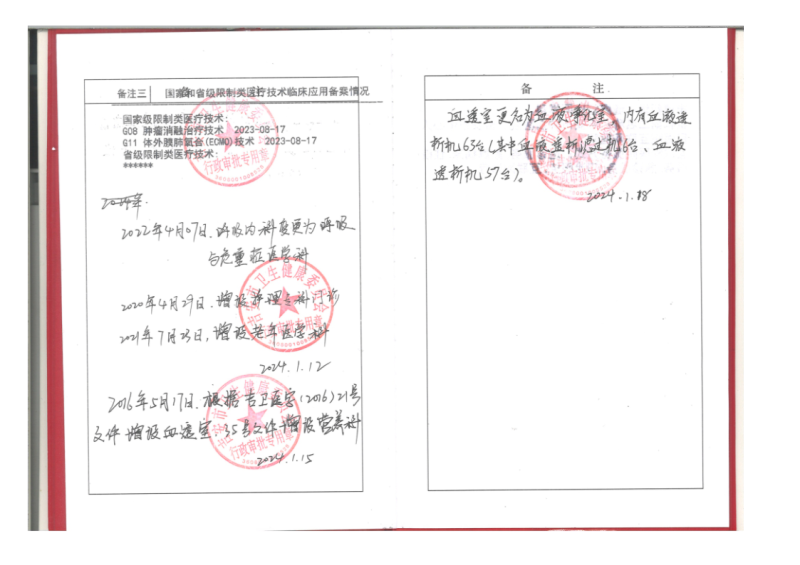 备注三 国家和省级限制类医疗技术临床应用备案情况
国家级限制类医疗技术:
G08 肿瘤消融治疗技术 2023-08-17
G11 体外膜肺氧合(ECMO)技术 2023-08-17
省级限制类医疗技术:
******
行政审批专用章
2022年4月07日.呼吸内科变更为呼吸
与危重症医学科
吉安市卫生健康委员会
2020年4月29日.增设护理专科门诊
2021年7月23日,增设老年医学科
2024.1.12
2016年5月17日.根据吉卫医字(2016)21号
文件增设血透室.35号文件增设营养科
行政审批专用章
2024.1.15
备 注
血透室更名为血液净化室,内有血液透
析机63台(其中血液透析滤过机6台、血液
透析机57台)。
2024.1.18